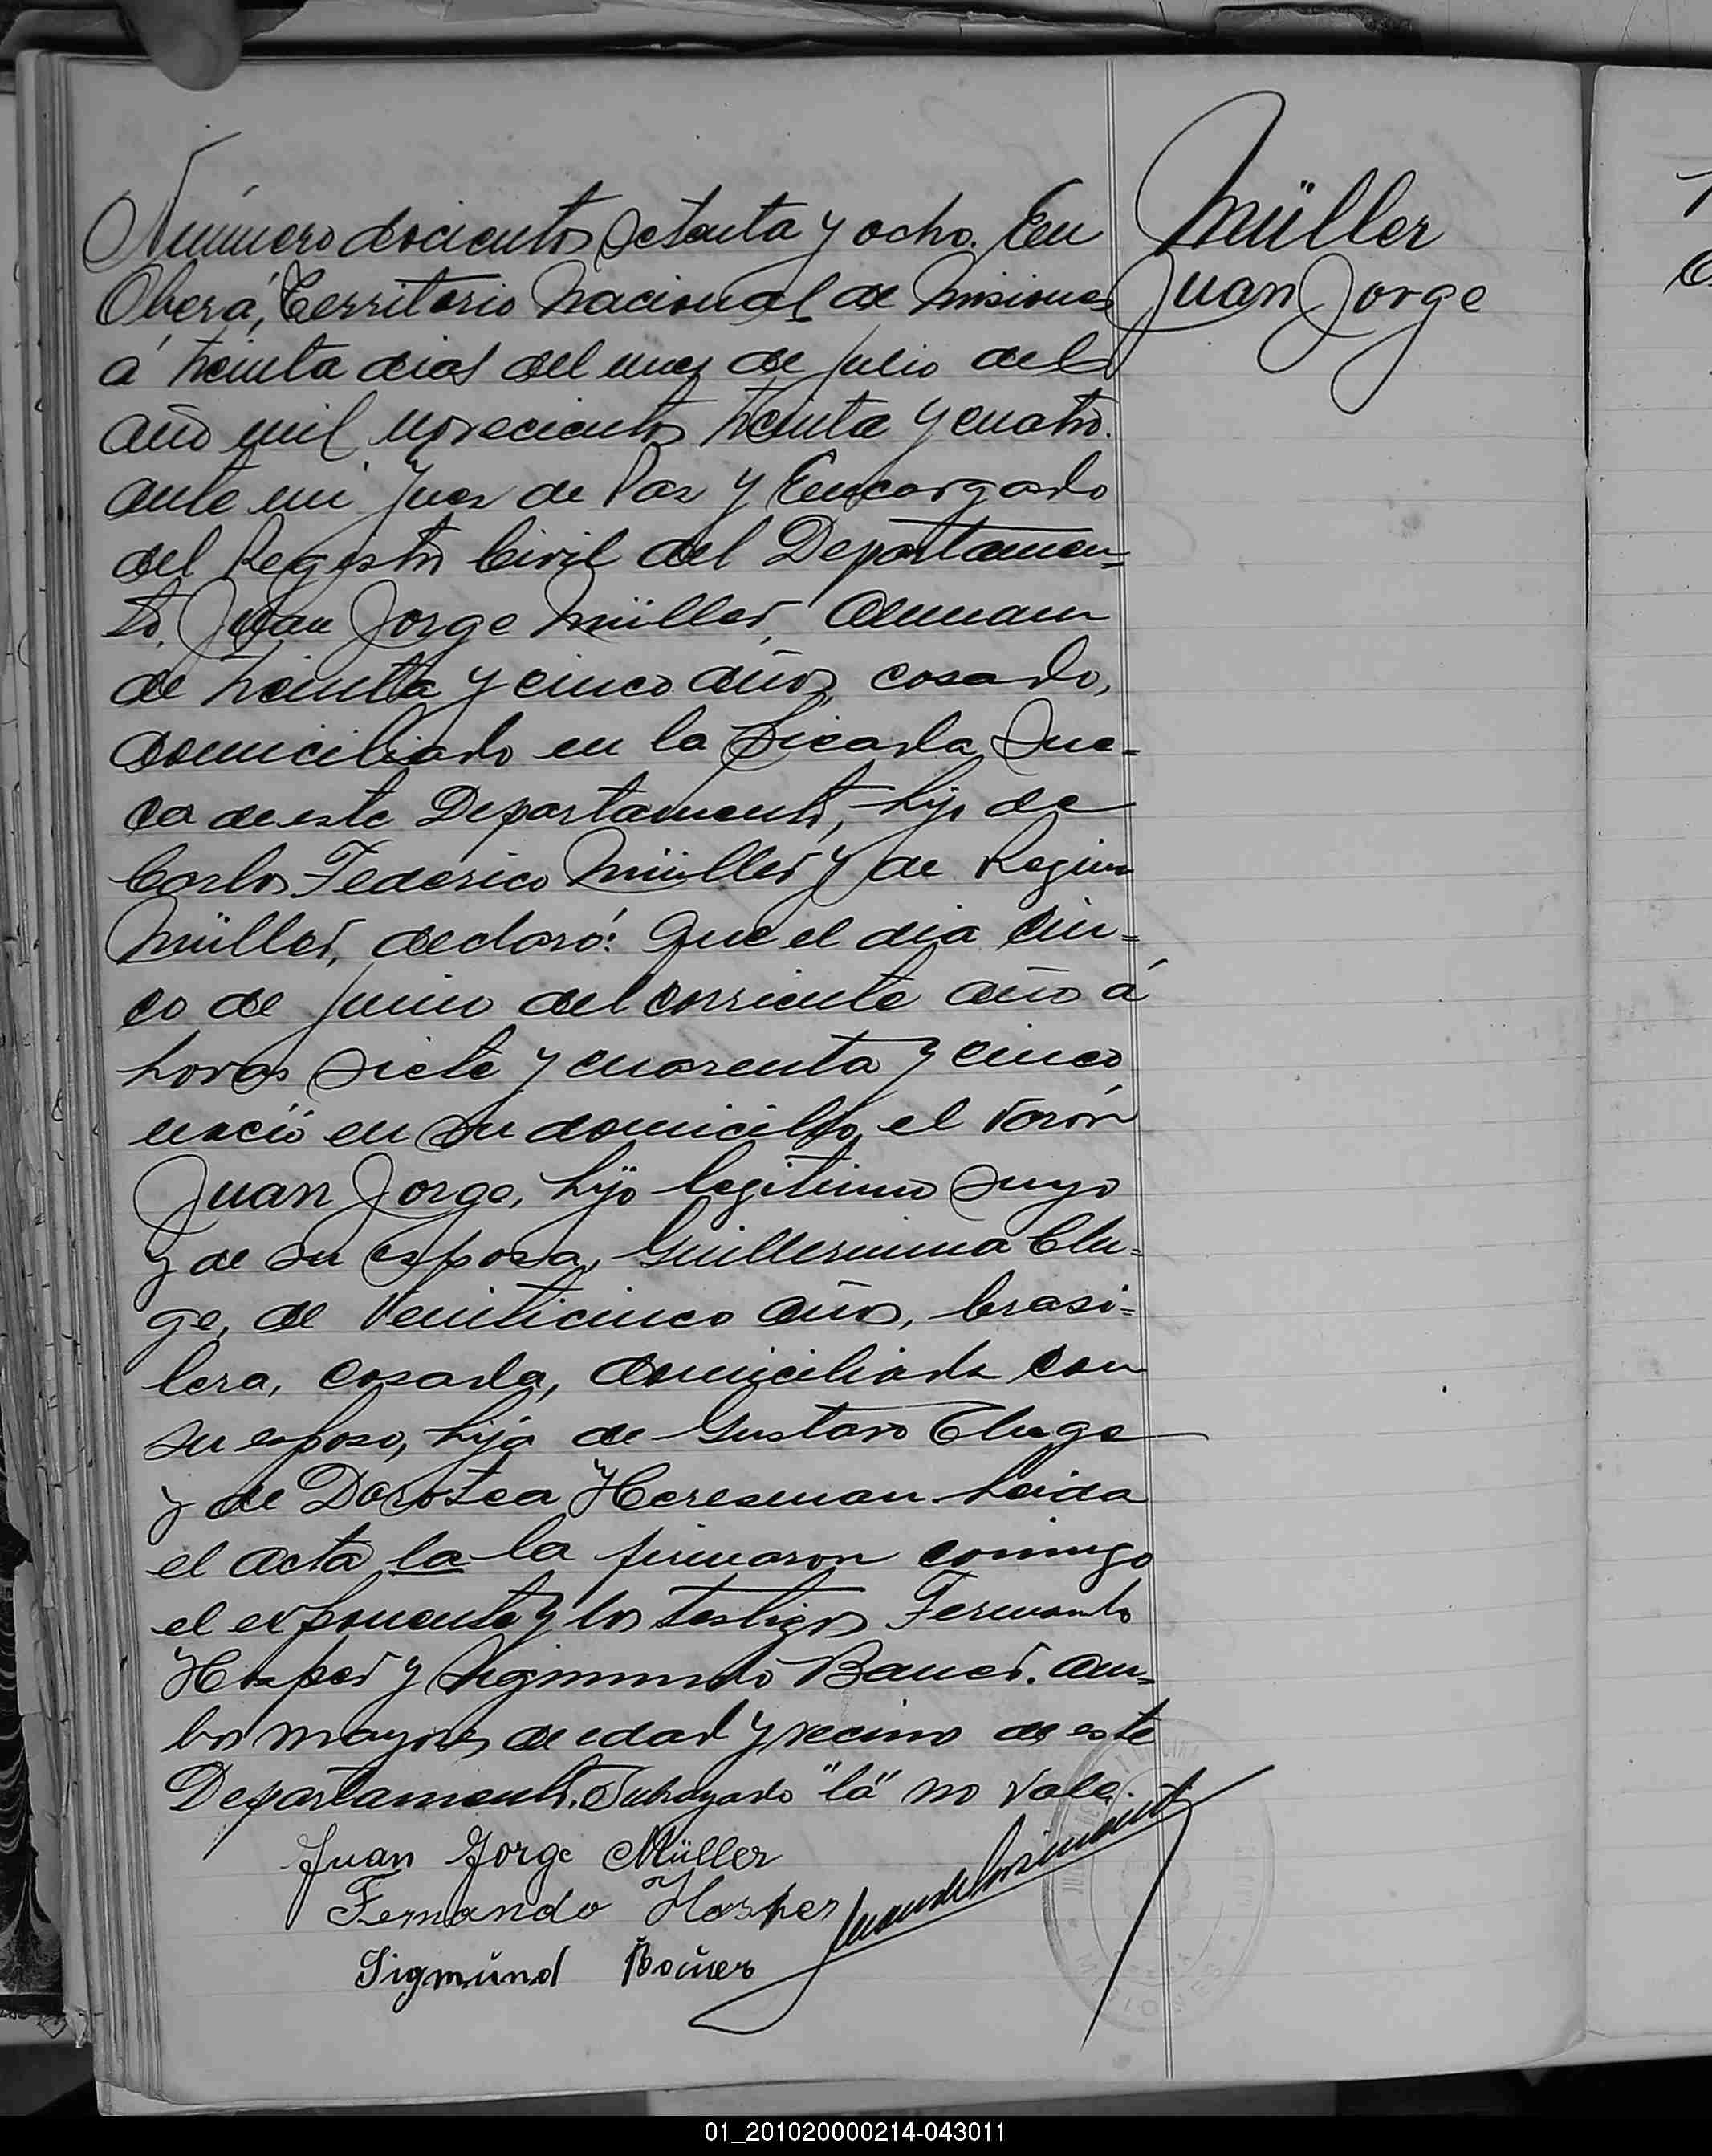 Número docientos setenta y ocho. En
Oberá, Territorio Nacional de Misiones
á treinta dias del mes de julio del
año mil novecientos treinta y cuatro.
ante mi Juez de Paz y Encargado
del Registro Civil del Departamen=
to, Juan Jorge Müller, Aleman
de treinta y cinco años, casado,
domiciliado en la Picada Sue=
ca de este Departamento, hijo de
Carlos Federico Müller y de Regina
Müller, declaró: Que el dia cin=
co de junio del corriente año á
horas siete y cuarenta y cinco
nació en su domicilio el varón
Juan Jorge, hijo legitimo suyo
y de su esposa, Guillermina Clu=
ge, de veinticinco años, brasi=
lera, casada, domiciliada con
su esposo, hija de Gustavo Cluge
y de Dorotea Hereseman. Leida
el acta la la firmaron conmigo
el exponente y los testigos Fernando
Hosper y Sigmundo Bauer. Am=
bos mayores de edad y vecino de este
Departamento. Subrayado "la" no vale.
Juan Jorge Müller
Fernando Hosper
Sigmund Bauer
Müller
Juan Jorge
01_201020000214-043011